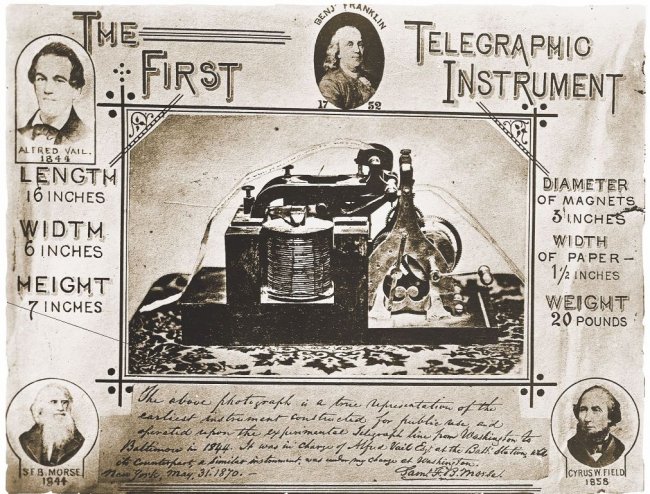 THE FIRST
TELEGRAPHIC INSTRUMENT
BENJ FRANKLIN
1752
ALFRED VAIL.
1844
LENGTH
16 INCHES
WIDTH
6 INCHES
HEIGHT
7 INCHES
DIAMETER
OF MAGNETS
3 INCHES
WIDTH
OF PAPER-
1½ INCHES
WEIGHT
20 POUNDS
The above photograph is a true representation of the
earliest instrument constructed for public use, and
operated upon the experimental Telegraph line from Washington to
Baltimore in 1844. It was in charge of Alfred Vail Esq. at the Balt. Station, and
its counterpart, a similar instrument, was under my charge at Washington.
New York, May, 31. 1870.- Saml. F. B. Morse.
S.F.B. MORSE
1844
CYRUS W. FIELD
1858